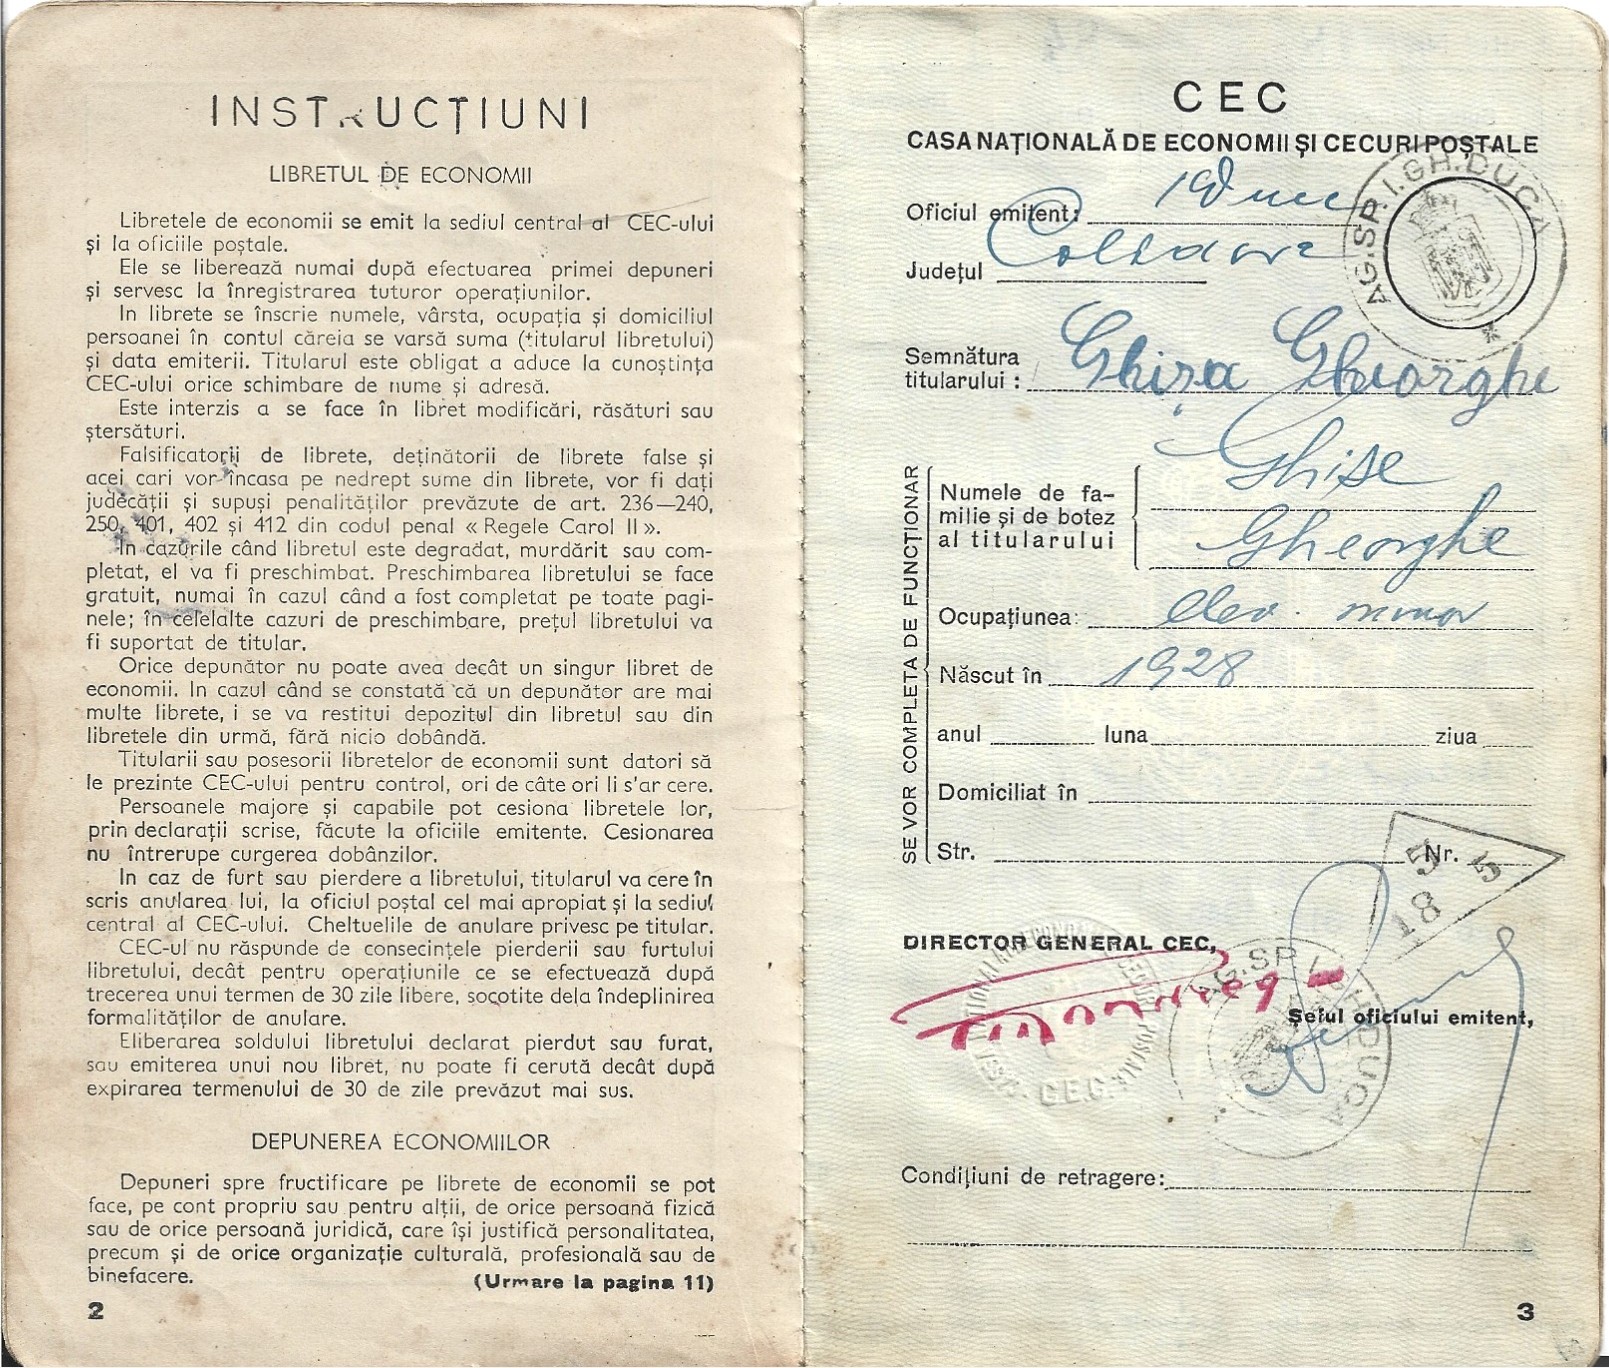 INSTRUCȚIUNI
LIBRETUL DE ECONOMII
Libretele de economii se emit la sediul central al CEC-ului
și la oficiile poștale.
Ele se liberează numai după efectuarea primei depuneri
și servesc la înregistrarea tuturor operațiunilor.
In librete se înscrie numele, vârsta, ocupația și domiciliul
persoanei în contul căreia se varsă suma (titularul libretului)
și data emiterii. Titularul este obligat a aduce la cunoștința
CEC-ului orice schimbare de nume și adresă.
Este interzis a se face în libret modificări, răsături sau
ștersături.
Falsificatorii de librete, deținătorii de librete false și
acei cari vor încasa pe nedrept sume din librete, vor fi dați
judecății și supuși penalităților prevăzute de art. 236—240,
250, 401, 402 și 412 din codul penal « Regele Carol II ».
In cazurile când libretul este degradat, murdărit sau com-
pletat, el va fi preschimbat. Preschimbarea libretului se face
gratuit, numai în cazul când a fost completat pe toate pagi-
nele; în celelalte cazuri de preschimbare, prețul libretului va
fi suportat de titular.
Orice depunător nu poate avea decât un singur libret de
economii. In cazul când se constată că un depunător are mai
multe librete, i se va restitui depozitul din libretul sau din
libretele din urmă, fără nicio dobândă.
Titularii sau posesorii libretelor de economii sunt datori să
le prezinte CEC-ului pentru control, ori de câte ori li s'ar cere.
Persoanele majore și capabile pot cesiona libretele lor,
prin declarații scrise, făcute la oficiile emitente. Cesionarea
nu întrerupe curgerea dobânzilor.
In caz de furt sau pierdere a libretului, titularul va cere în
scris anularea lui, la oficiul poștal cel mai apropiat și la sediul
central al CEC-ului. Cheltuelile de anulare privesc pe titular.
CEC-ul nu răspunde de consecințele pierderii sau furtului
libretului, decât pentru operațiunile ce se efectuează după
trecerea unui termen de 30 zile libere, socotite dela îndeplinirea
formalităților de anulare.
Eliberarea soldului libretului declarat pierdut sau furat,
sau emiterea unui nou libret, nu poate fi cerută decât după
expirarea termenului de 30 de zile prevăzut mai sus.
DEPUNEREA ECONOMIILOR
Depuneri spre fructificare pe librete de economii se pot
face, pe cont propriu sau pentru alții, de orice persoană fizică
sau de orice persoană juridică, care își justifică personalitatea,
precum și de orice organizație culturală, profesională sau de
binefacere.
(Urmare la pagina 11)
2
CEC
CASA NAȚIONALĂ DE ECONOMII ȘI CECURI POȘTALE
Oficiul emitent:
Județul
AG.SP.I.GH.DUCA
Semnătura
titularului: Ghișa Gheorghe
SE VOR COMPLETA DE FUNCȚIONAR
Numele de fa-
milie și de botez
al titularului
Ghișe
Gheorghe
Ocupațiunea: elev minor
Născut în 1928
anul luna ziua
Domiciliat în
Str. Nr.
5 5
18
DIRECTOR GENERAL CEC,
AG.SP.I.GH.DUCA
Șeful oficiului emitent,
C.E.C.
Condițiuni de retragere:
3